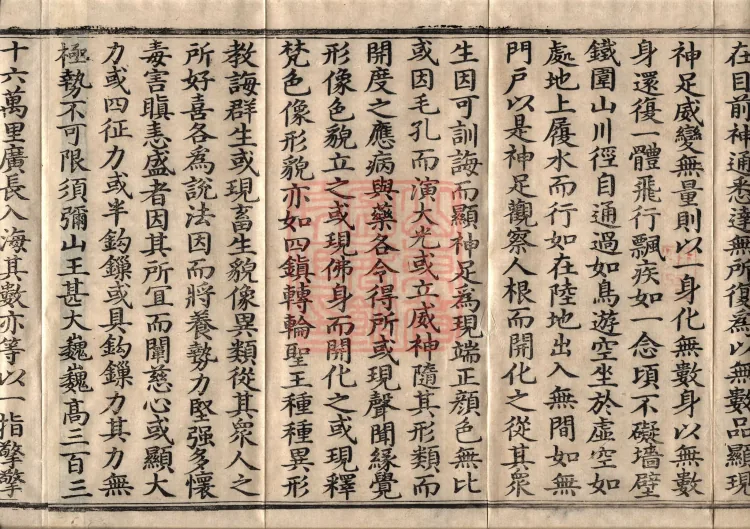 在目前神通悉達無所復為以無數品顯現
神足威變無量則以一身化無數身以無數
身還復一體飛行飄疾如一念頃不礙墻壁
鐵圍山川徑自通過如鳥遊空坐於虛空如
處地上履水而行如在陸地出入無間如無
門戶以是神足觀察人根而開化之從其衆
生因可訓誨而顯神足為現端正顏色無比
或因毛孔而演大光或立威神隨其形類而
開度之應病與藥各令得所或現聲聞緣覺
形像色貌立之或現佛身而開化之或現釋
梵色像形貌亦如四鎮轉輪聖王種種異形
教誨群生或現畜生貌像異類從其衆人之
所好喜各為說法因而將養勢力堅强多懷
毒害瞋恚盛者因其所宜而闡慈心或顯大
力或四征力或半鈎鏁或具鈎鏁力其力無
極勢不可限須彌山王甚大巍巍高三百三
十六萬里廣長入海其數亦等以一指擎擎